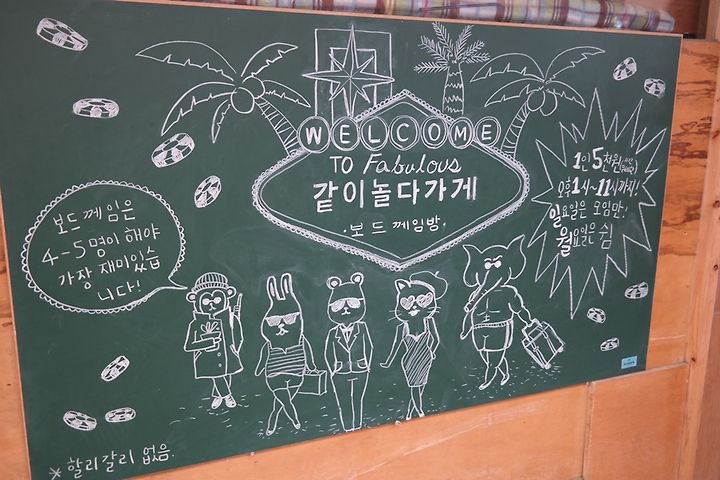 WELCOME
TO Fabulous
같이놀다가게
·보드께임방·
보드 께임은
4-5명이 해야
가장 재미있습
니다!
1인 5천원
오후1시~11시까지!
일요일은 모임만!
월요일은 쉼
*할리갈리 없음.